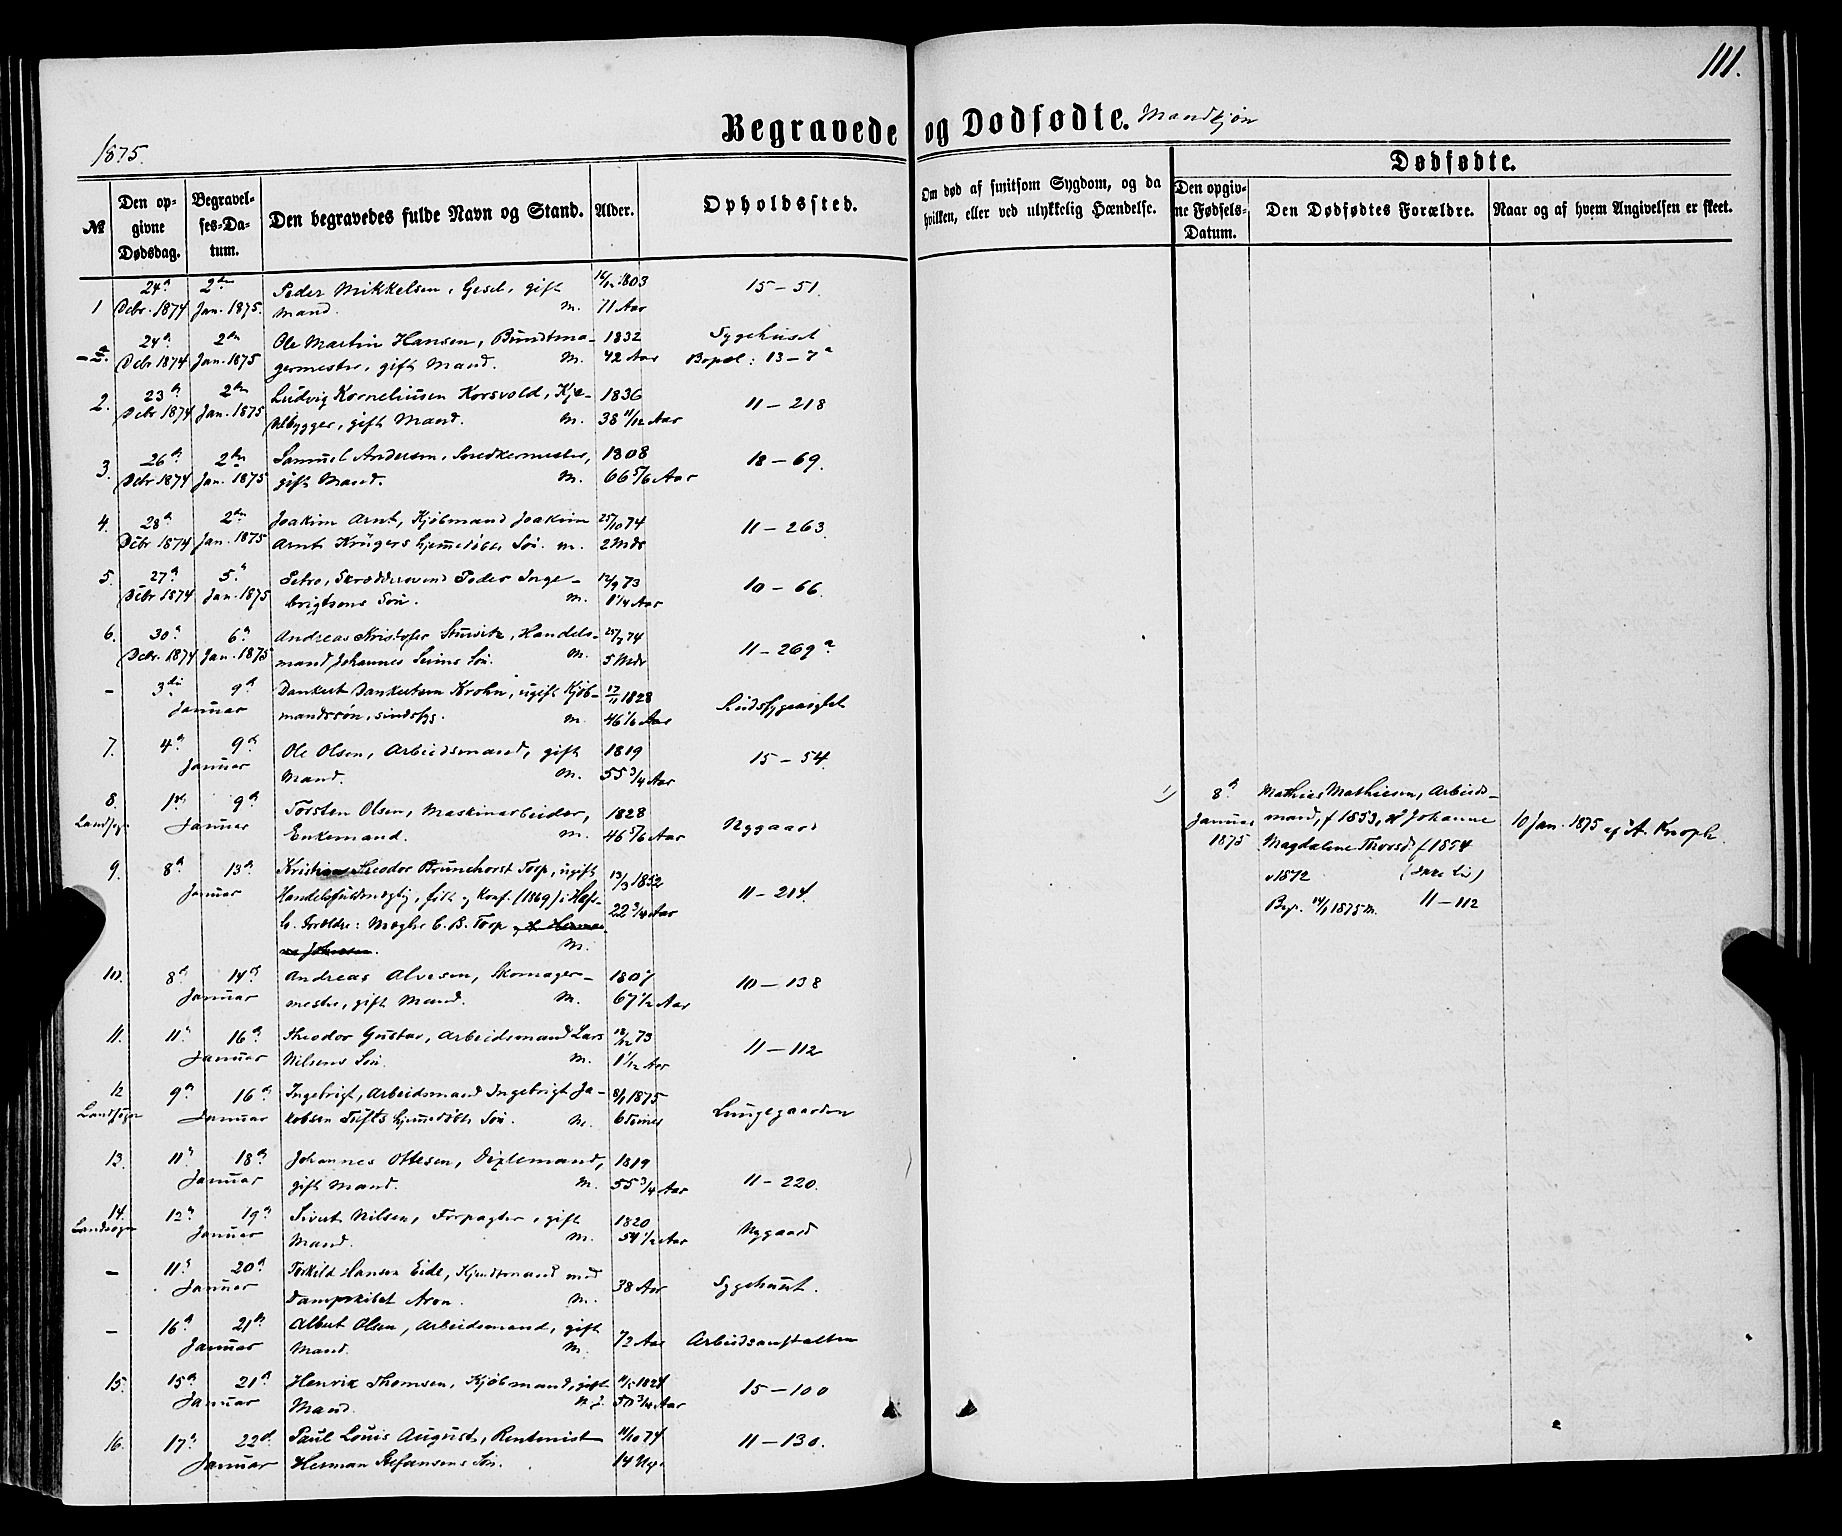 111.
1875.
Begravede og Dødfødte. Mandkjøn
Dødfødte.
№
Den opgivne Dødsdag.
Begravelses-Datum.
Den begravedes fulde Navn og Stand.
Alder.
Opholdssted.
Om død af smitsom Sygdom, og da hvilken, eller ved ulykkelig Hændelse.
Den opgivne Fødsels-Datum.
Den Dødfødtes Forældre.
Naar og af hvem Angivelsen er skeet.
1 24d Debr. 1874 2den Jan. 1875. Peder Mikkelsen, Gesel, gift 16/12 1803 15 – 51.
Mand. M. 71 Aar
24d Debr 1874 2den Jan. 1875 Ole Martin Hansen, Bundtma- 1832 Sygehuset
germester, gift Mand. M. 42 Aar Bopæl: 13 – 7a
2. 23d Debr 1874 2den Jan. 1875 Ludvig Korneliusen Korsvold, Kje- 1836 11 – 218
delbygger, gift Mand. M. 38 11/12 Aar
3. 26d Debr 1874 2den Jan. 1875 Samuel Andersen, Snedkermester, 1808 18 – 69.
gift Mand. M. 66 5/6 Aar
4. 28d Debr 1874 2den Jan. 1875 Joakim Arnt, Kjøbmand Joakim 25/10 74 11 – 263.
Arnt Krügers hjemmedøbte Søn. M. 2 Mdr
5. 27d Debr 1874 5d Jan. 1875 Petro, Skræddersvend Peder Inge- 12/9 73 10 – 66.
brigtsens Søn. M. 1 1/4 Aar
6. 30d Debr. 1874 6d Jan. 1875 Andreas Kristofer, Handels- 25/7 74 11 – 269a
mand Johannes Søn. M. 5 Mdr
– 3die 9d Januar Dankert Dankertsen Krohn, ugift Kjøb- 17/11 1828
mandssøn, sindssyg. M. 46 1/6 Aar
7. 4d 9d Januar Ole Olsen, Arbeidsmand, gift 1819 15 – 54.
Mand. M. 55 3/4 Aar
8. Landsogn 1ste 9d Januar Torsten Olsen, Maskinarbeider, 1828 Nygaard
Enkemand. M. 46 5/6 Aar
9. 8d 13d Januar Kristian Theodor Brunchorst Torp, ugift 13/3 1852 11 – 214.
Handelsfuldmægtig, født og Konf. (1869) i 22 3/4 Aar
Forældre: Mægler C. B. Torp
M.
10. 8d 14d Januar Andreas Alvesen, Skomager- 1807 10 – 138
mester, gift Mand. M. 67 1/2 Aar
11. 11d 16d Januar Theodor Gustav, Arbeidsmand Lars 12/12 73 11 – 112
Nilsens Søn. M. 1 1/12 Aar
12 Landsogn 9d 16d Januar Ingebrigt, Arbeidsmand Ingebrigt Ja- 8/1 1875 Lungegaarden
kobsen Tufts hjemmedøbte Søn. M. 6 Timer
13. 11d 18d Januar Johannes Ottesen, Dixlemand, 1819 11 – 220.
gift Mand. M. 55 3/4 Aar
14. Landsogn 12d 19d Januar Sivert Nilsen, Forpagter, gift 1820 Nygaard
Mand. M. 54 1/2 Aar
– 11d 20d Januar Torkild Hansen Eide, Kjendtmand med 38 Aar Sygehuset.
Dampskibet Aron. M.
– 16d 21de Januar Albert Olsen, Arbeidsmand, gift 72 Aar Arbeidsanstalten
Mand. M.
15. 15d 21d Januar Henrik Thomsen, Kjøbmand, gift 1824 15 – 100
Mand. 50 3/4 Aar
16. 17d 22d Januar Paul Louis August, Rentenist 11/10 74 11 – 130.
Herman Stefansens Søn. 14 Uger
1) 8d Januar 1875 Mathias Mathiesen, Arbeids-
mand, f 1853, & Johanne 10 Jan. 1875 af A. Knoph.
Magdalene Thorsd. f 1854
v 1872
Begr. 14/1 1875 M. 11 – 112